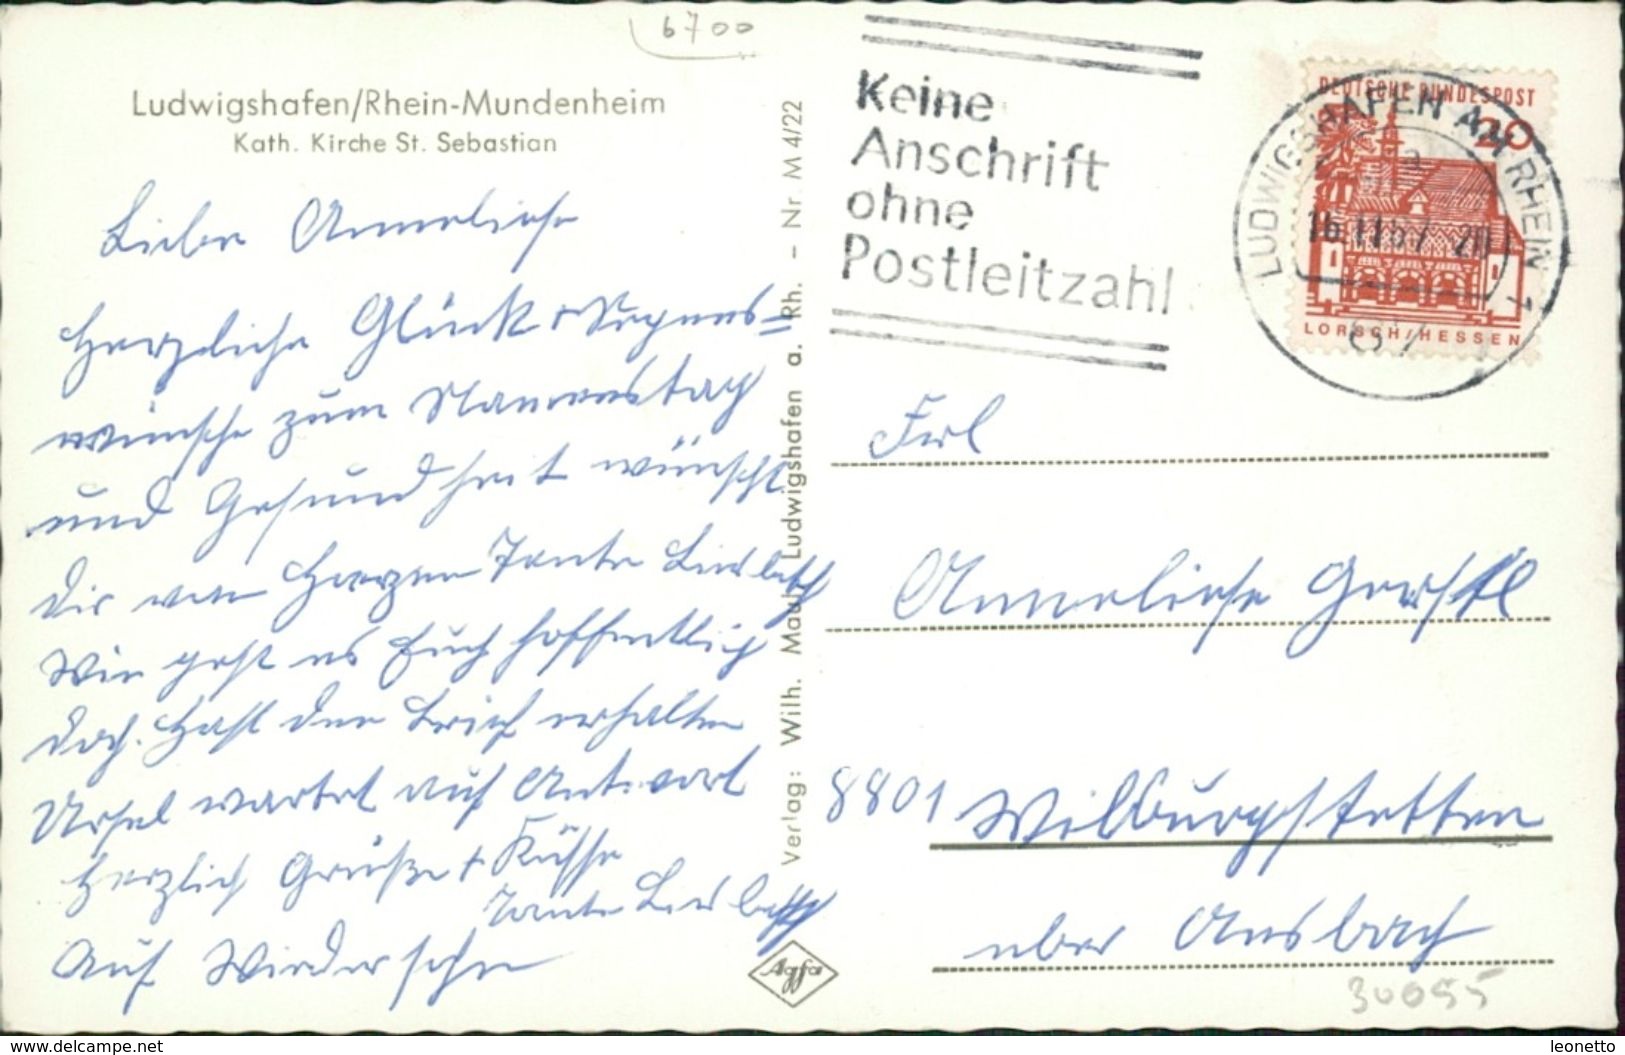 6700
Ludwigshafen/Rhein-Mundenheim
Kath. Kirche St. Sebastian
Liebe Anneliese
Herzliche Glück + Segens=
wünsche zum Namenstag
und Gesundheit wünscht
Dir von Herzen Tante
Wie geht es Euch hoffentlich
doch. Hast den Brief erhalten
Ursel wartet auf Antwort
Herzlich Grüße + Küsse
Tante
Auf Wiedersehn
Verlag: Wilh. Maul Ludwigshafen a. Rh. - Nr. M 4/22
Agfa
Keine
Anschrift
ohne
Postleitzahl
DEUTSCHE BUNDESPOST
20
LORSCH/HESSEN
LUDWIGSHAFEN AM RHEIN 1
Frl
Anneliese Gerstl
8801 Wilburgstetten
über Ansbach
30055
www.delcampe.net
leonetto